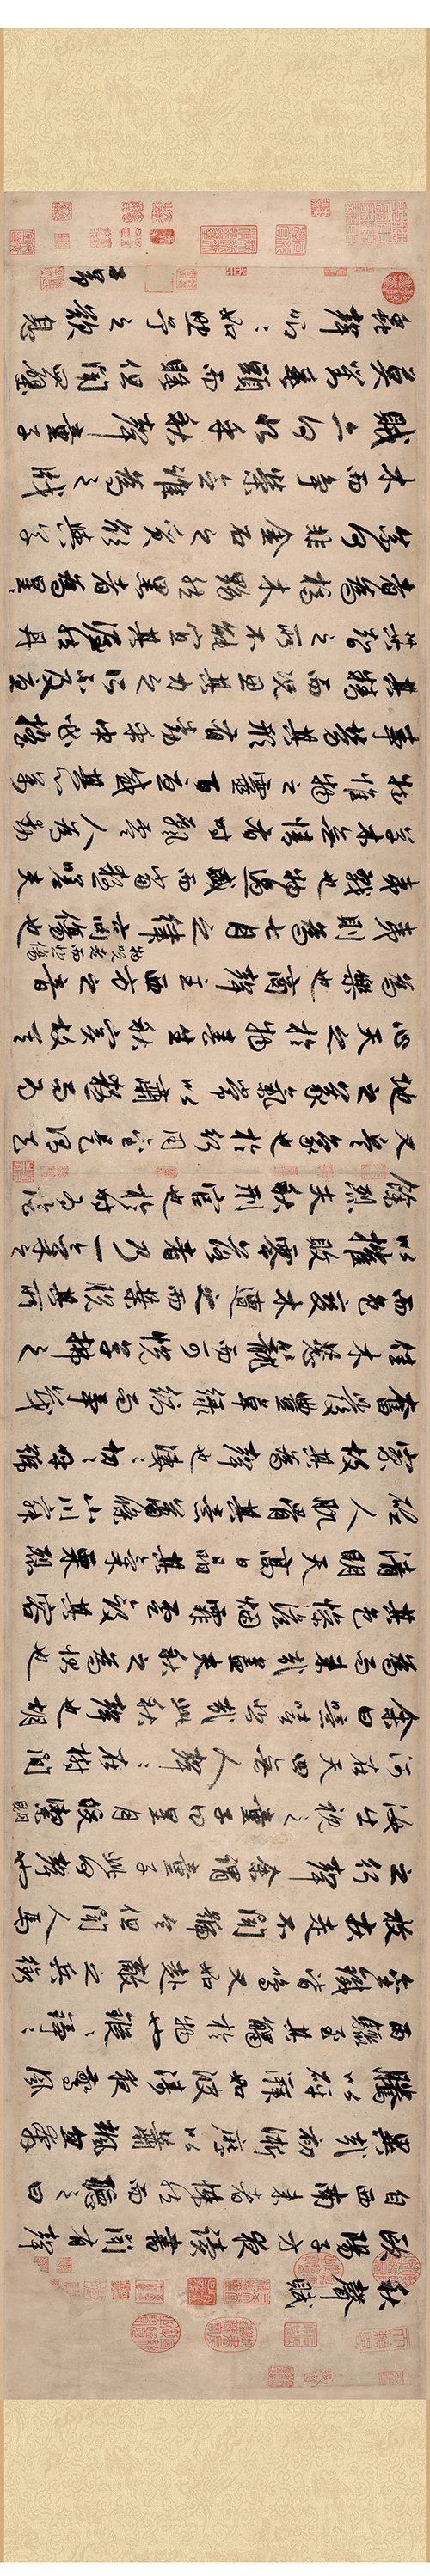 秋聲賦
歐陽子方夜讀書聞有聲
自西南來者悚然而聽之曰
異哉初淅瀝以蕭颯忽奔
騰以砰湃如波濤夜驚風
雨驟至其觸於物也鏦鏦錚錚
金鐵皆鳴又如赴敵之兵銜
枚疾走不聞號令但聞人馬
之行聲余謂童子此何聲也
汝出視之童子曰星月皎潔明
河在天四無人聲聲在樹間
余曰噫嘻悲哉此秋聲也胡
為而來哉蓋夫秋之為狀也
其色慘淡煙霏雲斂其容
清明天高日晶其氣栗烈
砭人肌骨其意蕭條山川寂
寥故其為聲也淒淒切切呼號
奮發豐草綠縟而爭茂
佳木蔥籠而可悅草拂之
而色變木遭之而葉脫其所
以摧敗零落者乃一氣之
餘烈夫秋刑官也於時為陰
又兵象也於行用金是謂天
地之義氣常以肅殺而為
心天之於物春生秋實故其
為樂也商聲主西方之音
夷則為七月之律商傷也
物既老而悲傷
夷戮也物過盛而當殺嗟夫
草木無情有時飄零人為動
物惟物之靈百憂感其心萬
事勞其形有動乎中必搖
其精而況思其力之所不及憂
其智之所不能宜其渥然丹
者為槁木黟然黑者為星星
奈何非金石之質欲與草
木而爭榮念誰為之戕
賊亦何恨乎秋聲童子
莫對垂頭而睡但聞四壁
蟲聲唧唧如助予之歎息
子昂